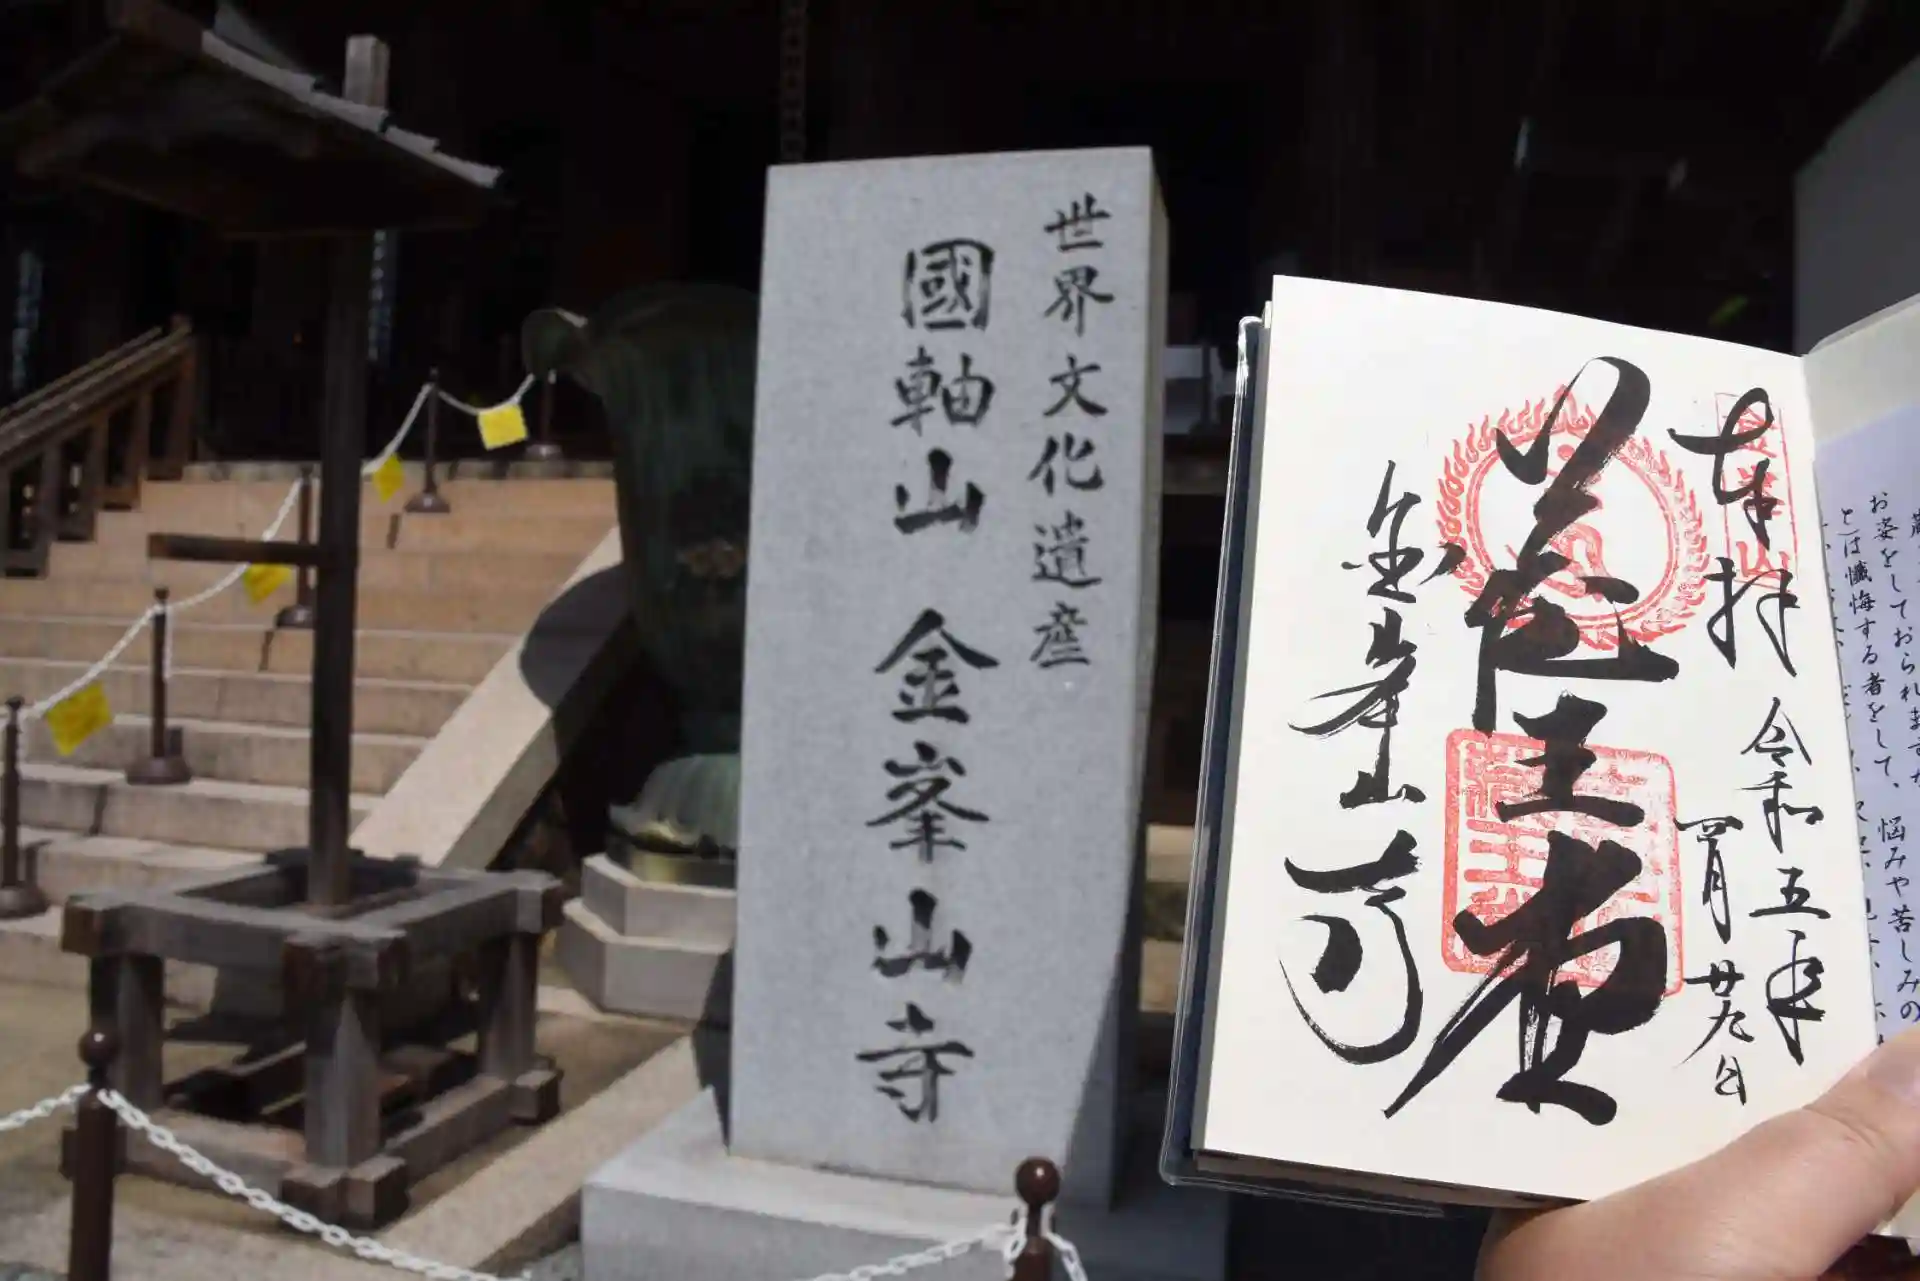 世界文化遺産
國軸山 金峯山寺
奉拝 令和五年
四月廿九日
蔵王堂
金峯山寺
お姿をしておられます
とは懺悔する者をして、悩みや苦しみの